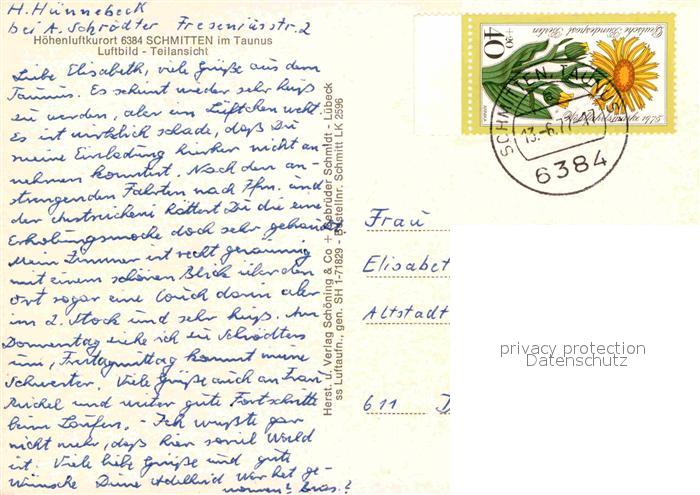 H. Hünnebeck
bei A. Schrödter Freseniusstr. 2
Höhenluftkurort 6384 SCHMITTEN im Taunus
Luftbild - Teilansicht
Liebe Elisabeth, viele Grüße aus dem
Taunus. Es scheint wieder sehr heiß
zu werden, aber ein Lüftchen weht.
Es ist wirklich schade, daß Du
meine Einladung hierher nicht an-
nehmen konntest. Nach den an-
strengenden Fahrten nach Ffm. und
der Anstreicherei hättest Du die eine
Erholungswoche doch sehr gebraucht
Mein Zimmer ist recht geräumig
mit einem schönen Blick über den
Ort sogar eine Couch darin aber
im 2. Stock und sehr heiß. Am
Donnerstag ziehe ich zu Schrödters
um, Freitagmittag kommt meine
Schwester. Viele Grüße auch an Frau
und weiter gute Fortschritte
beim Laufen. - Ich wußte gar
nicht mehr, daß hier soviel Wald
ist. Viele liebe Grüße und gute
Wünsche Deine Adelheid Wer hat ge-
wonnen?
Herst. u. Verlag Schöning & Co + Gebrüder Schmidt - Lübeck
ss Luftaufn., gen. SH 1-71829 - Bestellnr. Schmitt LK 2596
Deutsche Bundespost Berlin
40
+20
SCHMITTEN, TAUNUS
13.-6.77
6384
Frau
Elisabet
Altstadt
611 D
privacy protection
Datenschutz